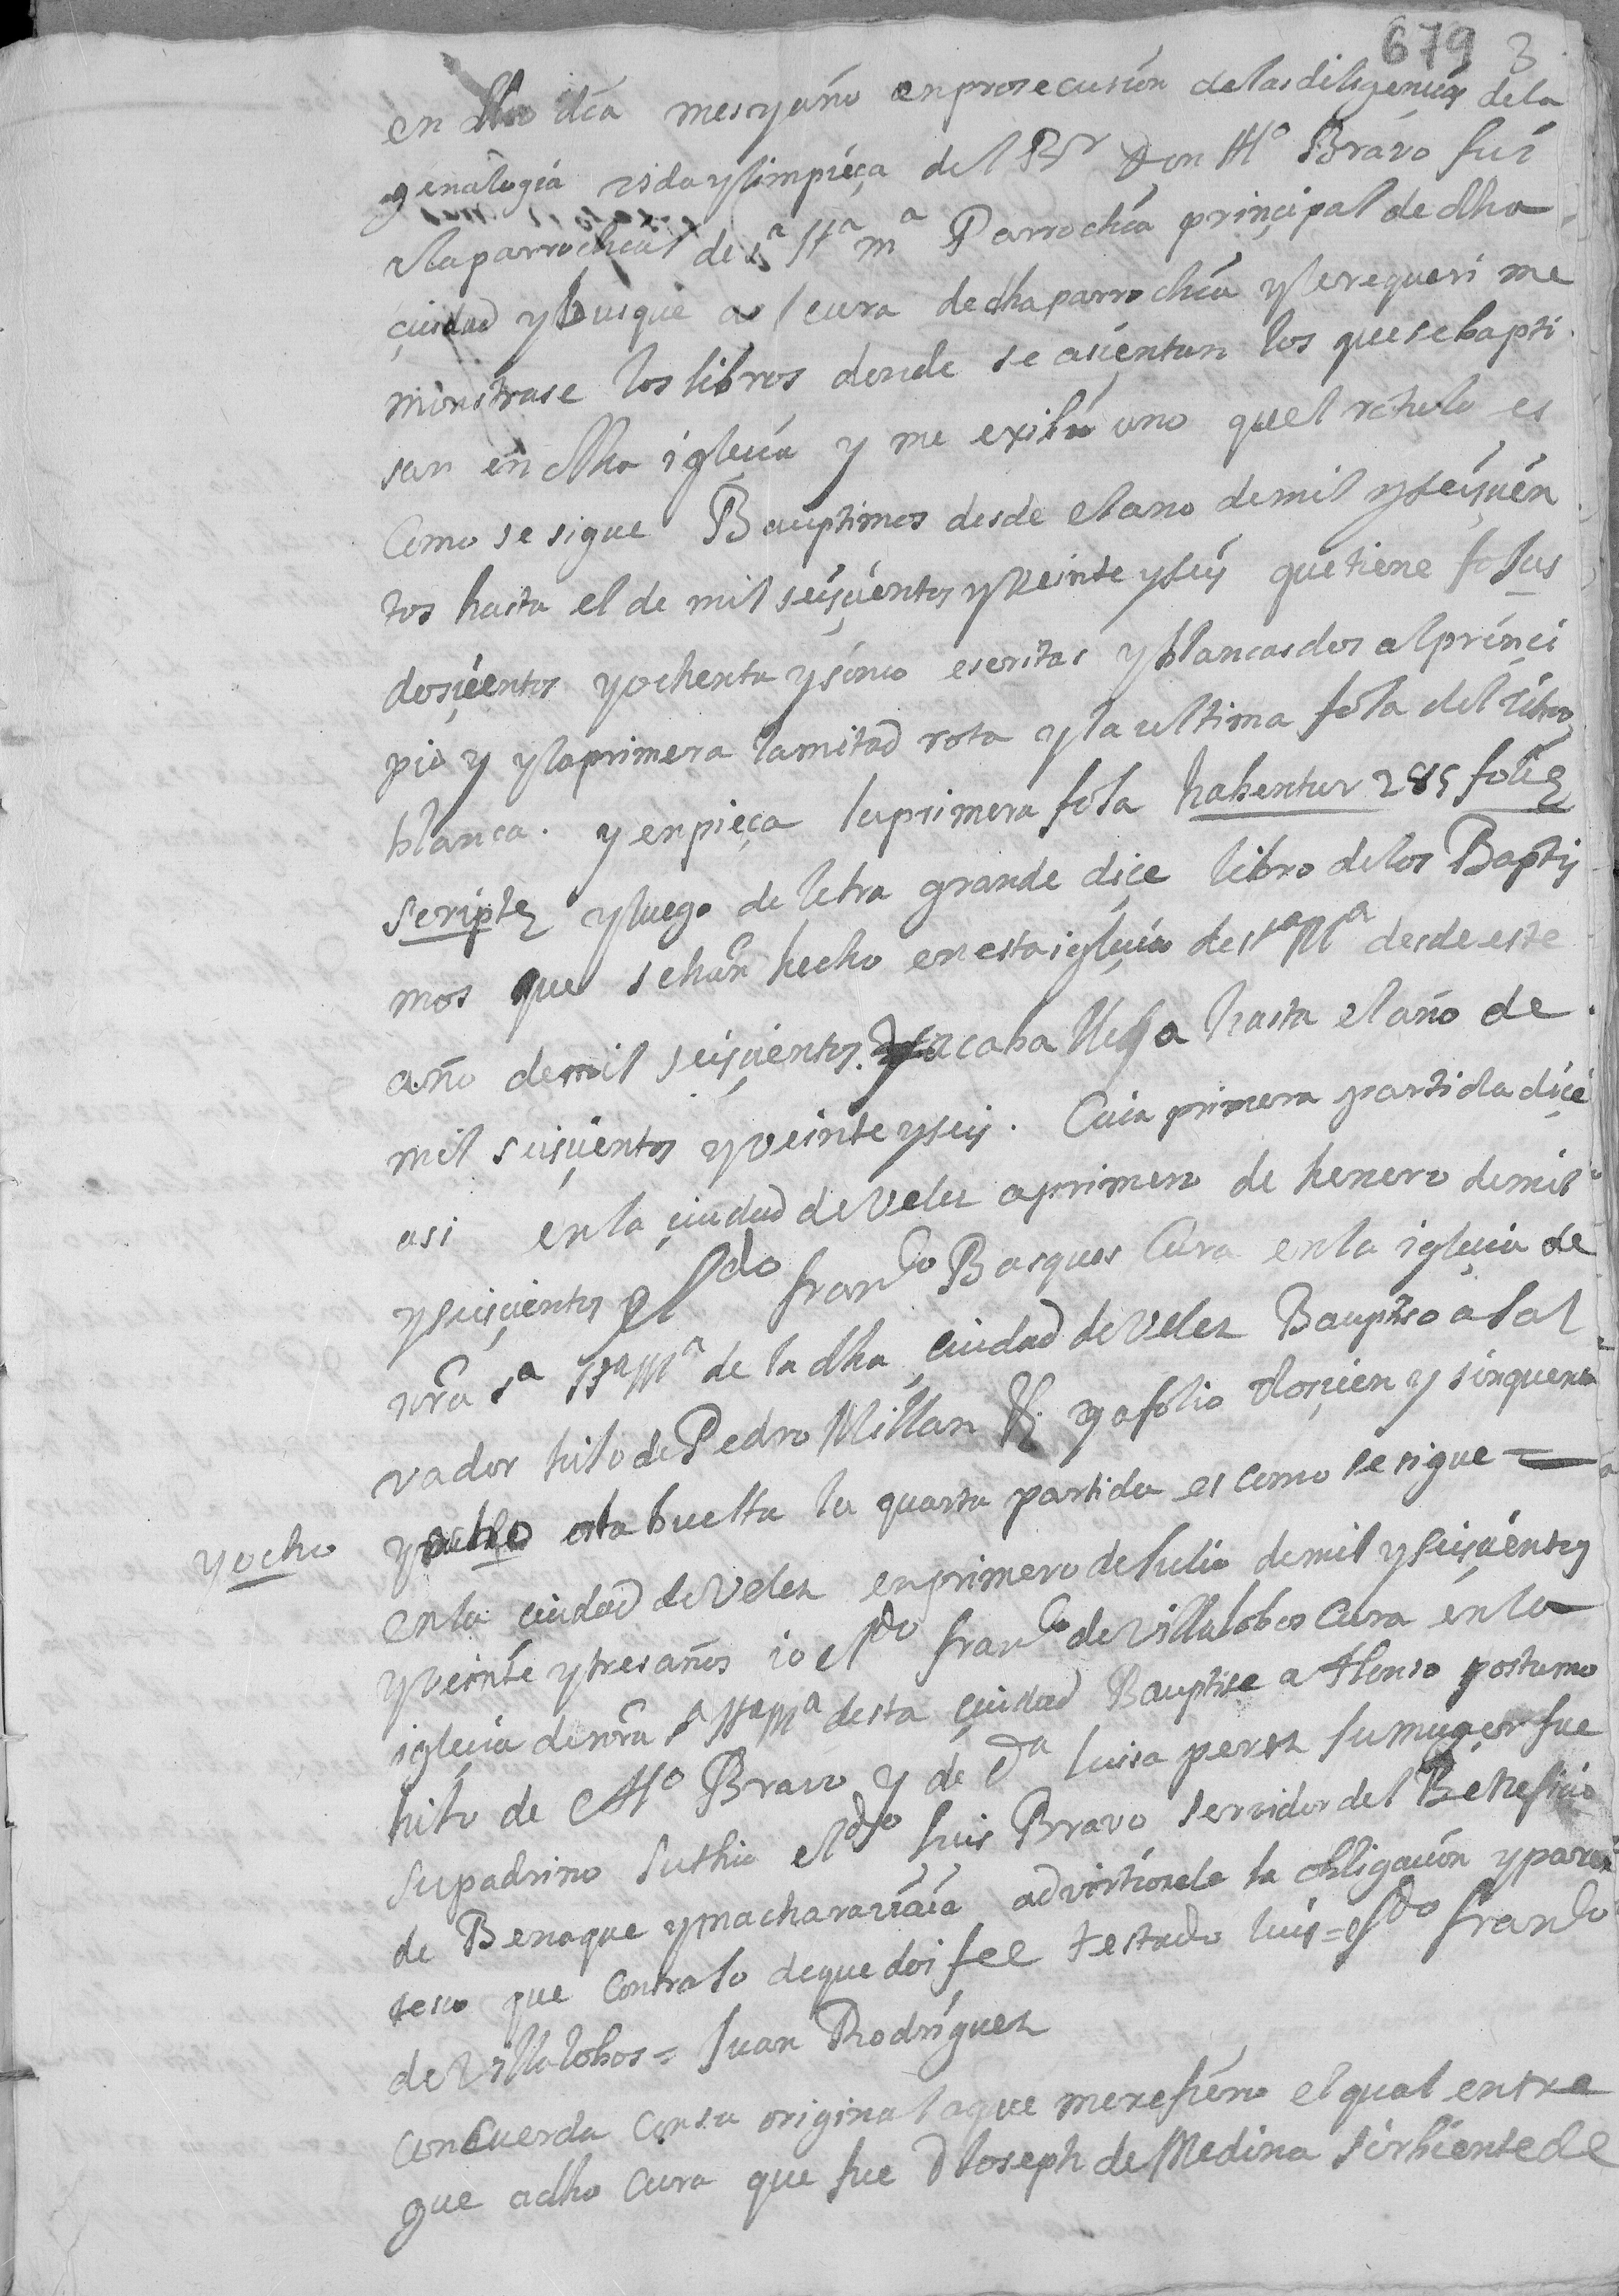 679 3
en dho dia mes y año en prosecusion de las diligencias de la
genalogia vida y limpieça del Rr Don Alo Bravo fui
a la parrochial de sa Sta ma Parrochia principal de dha
çiudad y busque al cura de dha parrochia y le requeri me
minstrase los libros donde se asientan los que se bapti
san en dha iglecia y me exibio uno quel rotulo es
Como se sigue Bauptimos desde el ano de mil y seisçien
tos hasta el de mil seisçientos y veinte y seis que tiene foJas
dosçientos y ochenta y sinco escritas y blancas dos al prinçi
pio y y la primera la mitad rota y la ultima foJa del libro
blanca. y enpieça la primera foJa habentur 285 folia
scripta y luego de letra grande diçe libro de los Baptis
mos que se han hecho en esta iglecia de sta Ma desde este
año de mil seisçientos. acaba llega hasta el año de
mil seisçientos y veinte y seis. Cuia primera partida diçe
asi en la çiudad de Velez a primero de henero de mil
y seisçientos El ldo franco Basques Cura en la iglecia de
nra sa Sta Ma de la dha çiudad de Velez Bauptiso a Sal
vador hiJo de Pedro Millan & y a folio dosçien y sinquenta
y ocho y ocho a la buelta la quarta partida es como se sigue =
en la çiudad de Velez en primero de Julio de mil y seisçientos
y veinte y tres años io el ldo franco de Villalobos Cura en la
iglecia de nra sa Sta Ma desta çiudad Bauptise a Alonso postumo
hiJo de Alo Bravo y de Da luisa perez su muger fue
su padrino su thio el ldo luis Bravo servidor del Benefisio
de Benaque y macharaviaia advirtiosele la obligacion y paren
tesco que contraJo de que doi fee testado luis = el ldo franco
de Villalobos = Juan Rodriguez
Concuerda con su original a que me refiero el qual entre
gue a dho Cura que fue D Joseph de Medina sirbiente de